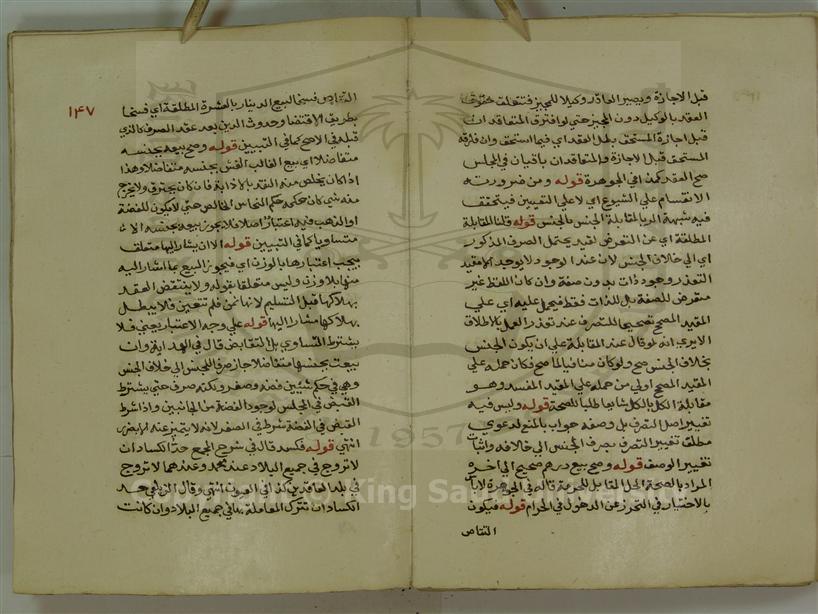 قبل الاجازة ويصير العاقد وكيلا للمجيز فتتعلق حقوق
العقد بالوكيل دون المجيز حتى لو افترق المتعاقدان
قبل اجازة المستحق بطل العقد اي فيما استحق وان فارقه
المستحق قبل الاجازة والمتعاقدان باقيان في المجلس
صح العقد كذا في الجوهرة قوله ومن ضرورته
الانقسام على الشيوع اي لا على التعيين فيتحقق
فيه شبهة الربا لمقابلة الجنس بالجنس قوله قلنا المقابلة
المطلقة اي عن التعرض لقيد يحتمل الصرف المذكور
اي الى خلاف الجنس لان عند الوجود لا يوجد الا مقيد
التعذر وجود ذات بدون صفة وان كان اللفظ غير
متعرض للصفة بل للذات فقط فيحمل عليه اي على
المقيد المصحح تصحيحا للتصرف عند تعذر العمل بالاطلاق
الا يرى انه لو قال عند المقابلة على ان يكون الجنس
بخلاف الجنس صح ولو كان منافيا لما صح فكان حمله على
المقيد المصحح اولى من حمله على المقيد المفسد وهو
مقابلة الكل بالكل شايعا طلبا للصحة قوله وليس فيه
تغيير اصل التصرف بل وصفه جواب بالمنع لدعوى
مطلق تغيير التصرف بصرف الجنس الى خلافه واثبات
تغيير الوصف قوله وصح بيع درهم صحيح الى اخره
المراد بالصحة الحل المقابل للحرمة قاله في الجوهرة
بالاختيار في التحرز عن الدخول في الحرام قوله فيكون
التقاص
١٤٧
التقاص فسخا لبيع الدينار بالعشرة المطلقة اي فسخا
بطريق الاقتضا وحدوث الدين بعد عقد الصرف كالذي
قبله في الاصح كما في التبيين قوله وصح بيعه بجنسه
متفاضلا اي بيع الغالب الغش بجنسه متفاضلا وهذا
اذا كان يخلص منه النقد بالاذابة فان كان يحترق ولا يخرج
منه شي كان حكمه حكم النحاس الخالص حتى لا يكون للفضة
او الذهب فيه اعتبار اصلا فلا يجوز بيعه بجنسه الا
متساويا كما في التبيين قوله الا ان يشار اليها متعلق
بيجب اعتبارها بالوزن اي فيجوز البيع بما اشار اليه
منها بلا وزن وليس متعلقا بقوله ولا ينتقض العقد
بهلاكها قبل التسليم لانها ثمن فلم تتعين فلا يبطل
بهلاكها مشارا اليها قوله على وجه الاعتبار يعني فلا
يشترط التساوي بل التقابض قال في الهداية وان
بيعت بجنسها متفاضلا جاز صرفا للجنس الى خلاف الجنس
وهي في حكم شيئين فضة وصفر ولكنه صرف حتى يشترط
القبض في المجلس لوجود الفضة من الجانبين واذا شرط
القبض في الفضة شرط في الصفر لانه لا يتميز عنه الا بضرر
انتهى قوله فكسد قال في شرح المجمع حد الكساد ان
لا تروج في جميع البلاد عند محمد وعندهما لا تروج
في بلد العاقدين كذا في العيون انتهى وقال الزيلعي حد
الكساد ان تترك المعاملة بها في جميع البلاد وان كانت